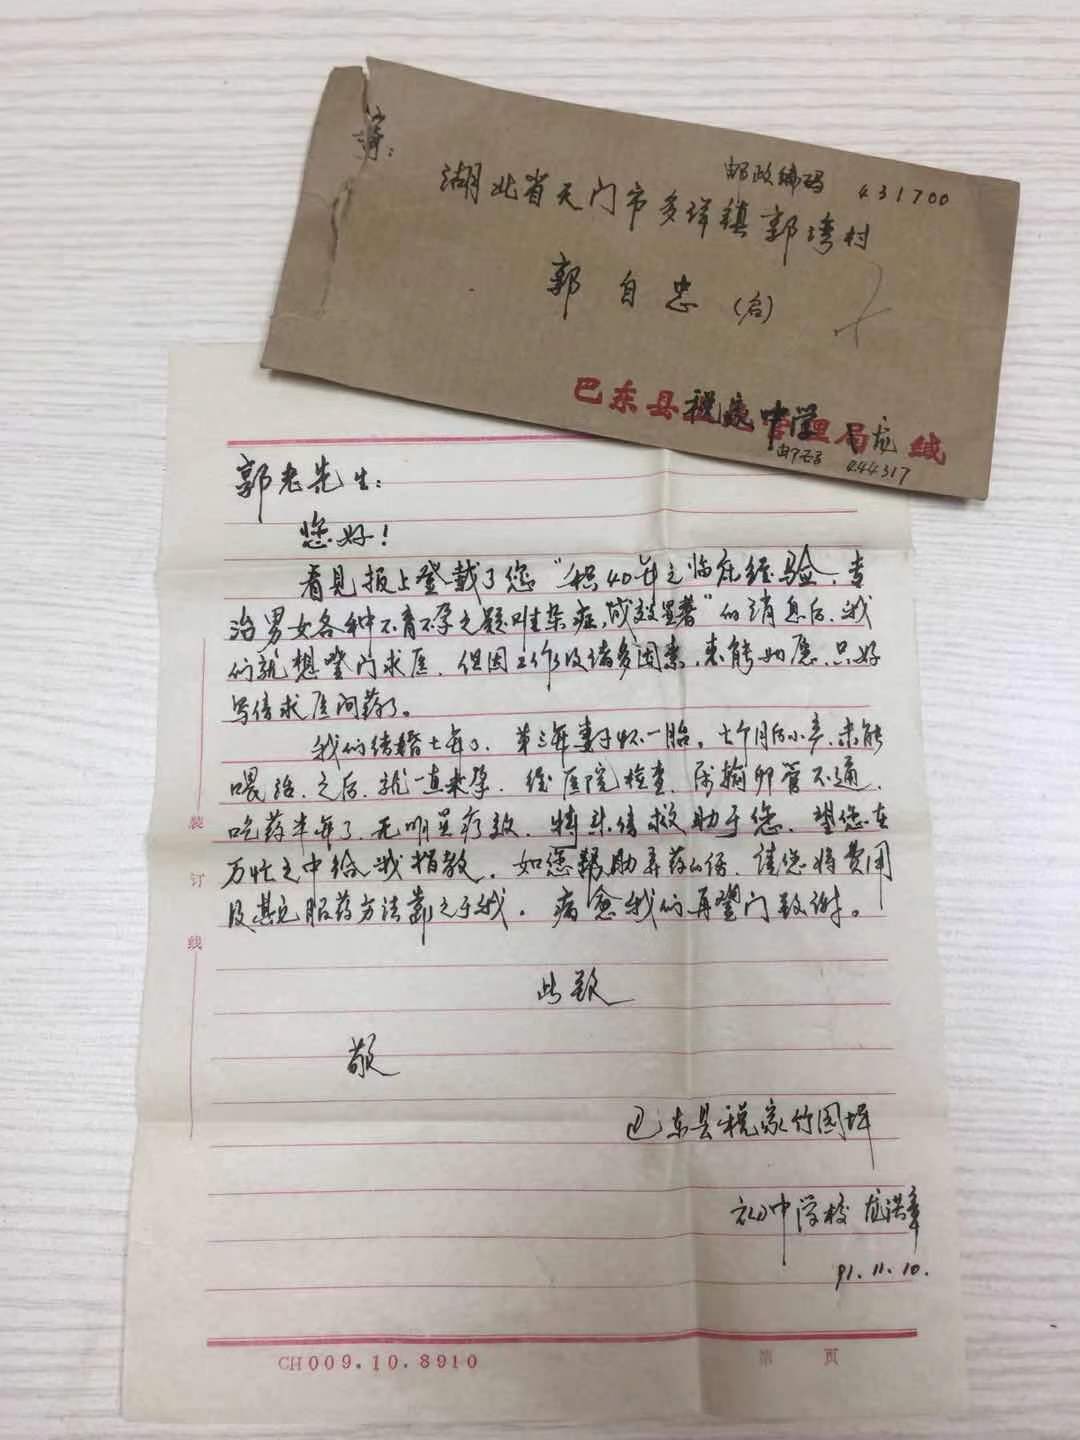 寄：
邮政编码 431700
湖北省天门市多祥镇郭湾村
郭自忠（启）
巴东县税家中学 龙 缄
理局
邮码 444317
郭老先生：
您好！
看见报上登载了您“积40年之临床经验，专
治男女各种不育不孕之疑难杂症，成效显著”的消息后，我
们就想登门求医，但因工作及诸多因素，未能如愿，只好
写信求医问药了。
我们结婚七年了，第三年妻子怀一胎，七个月后小产，未能
喂活，之后，就一直未孕，经医院检查，属输卵管不通，
吃药半年了，无明显疗效，特来信求助于您，望您在
万忙之中给我指教，如您帮助弄药的话，请您将费用
及其它服药方法告之于我，病愈我们再登门致谢。
此致
敬
巴东县税家竹园坪
初中学校 龙洪章
91.11.10.
装
订
线
CH009.10.8910
第 页